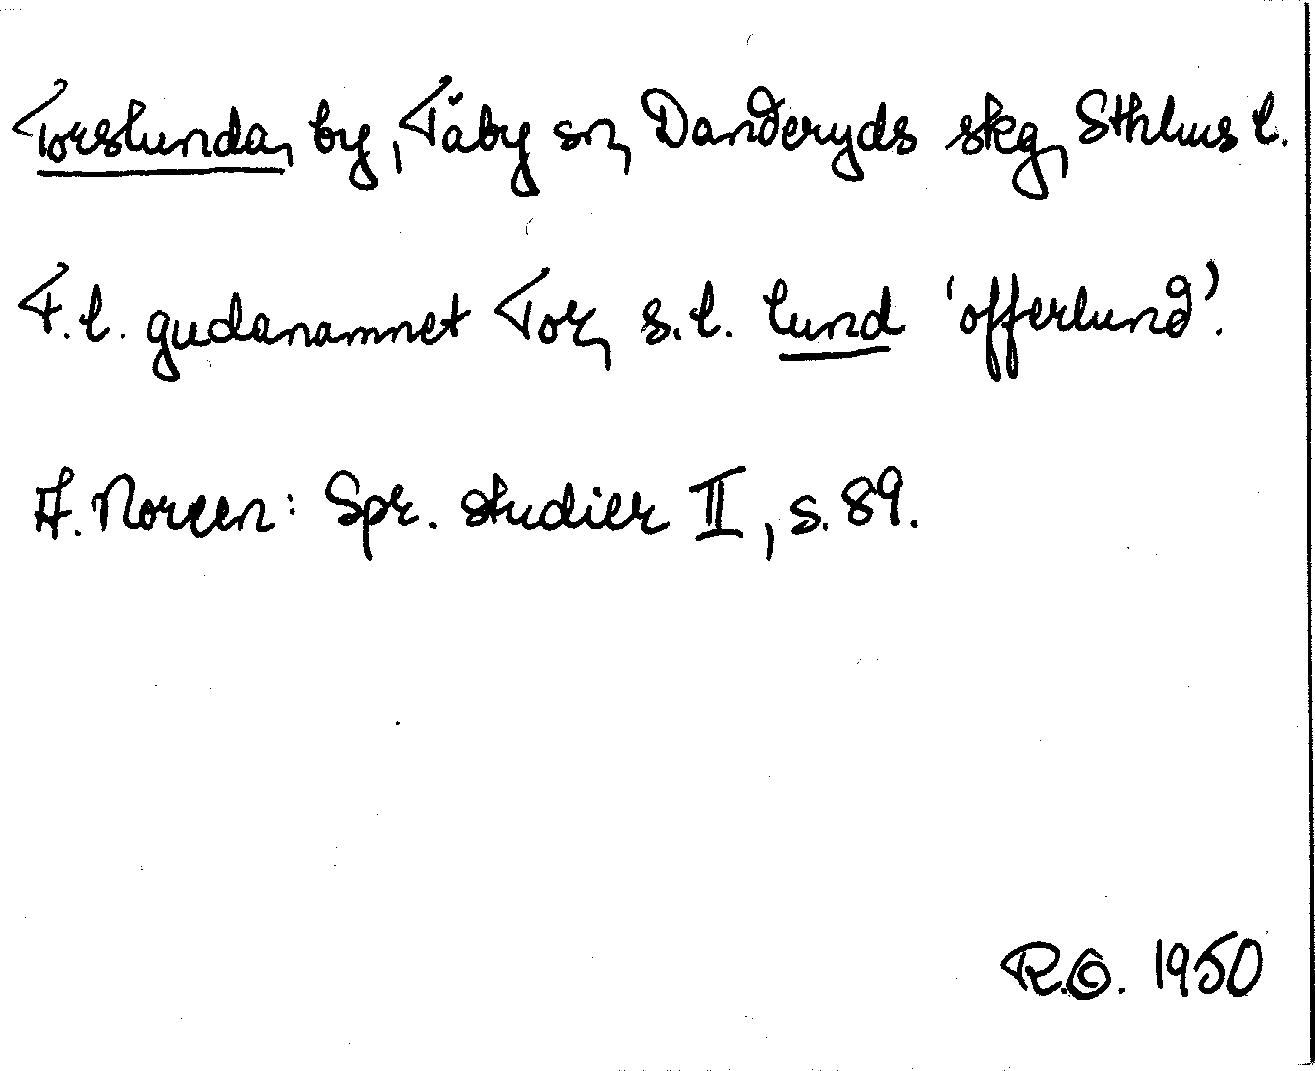 Torslunda, by, Täby sn, Danderyds skg, Sthlms l.
F.l. gudanamnet Tor, s.l. lund 'offerlund'.
A. Noreen: Spr. studier II, s. 89.
R.G. 1950